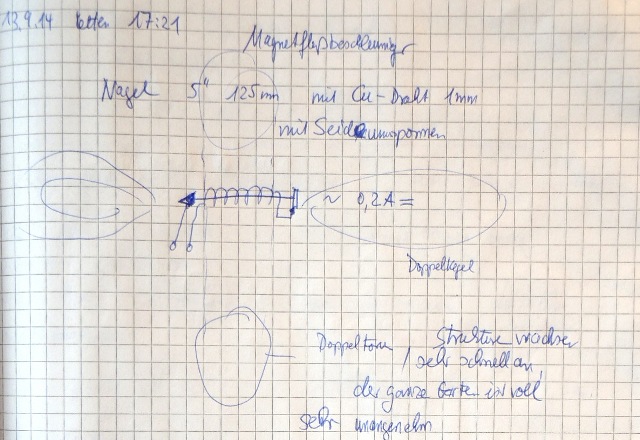 13.9.14 17:21
Magnetflußbeschleuniger
Nagel 5" 125mm mit Cu-Draht 1mm
mit Seide umsponnen
~ 0,2A =
Doppelkegel
Doppeltorus Strukturen wachsen
/ sehr schnell an,
der ganze Garten ist voll
sehr unangenehm